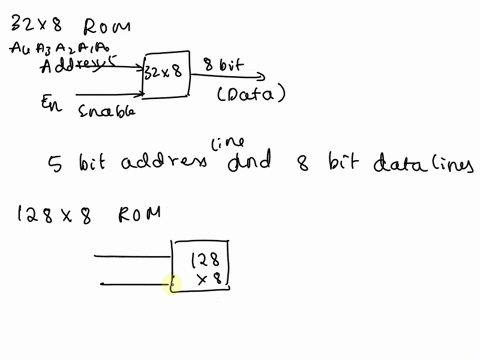 32×8 ROM
A4 A3 A2 A1 A0
Address 5
32×8
8 bit
(Data)
En
Enable
5 bit address line and 8 bit data lines
128 × 8 ROM
128
× 8